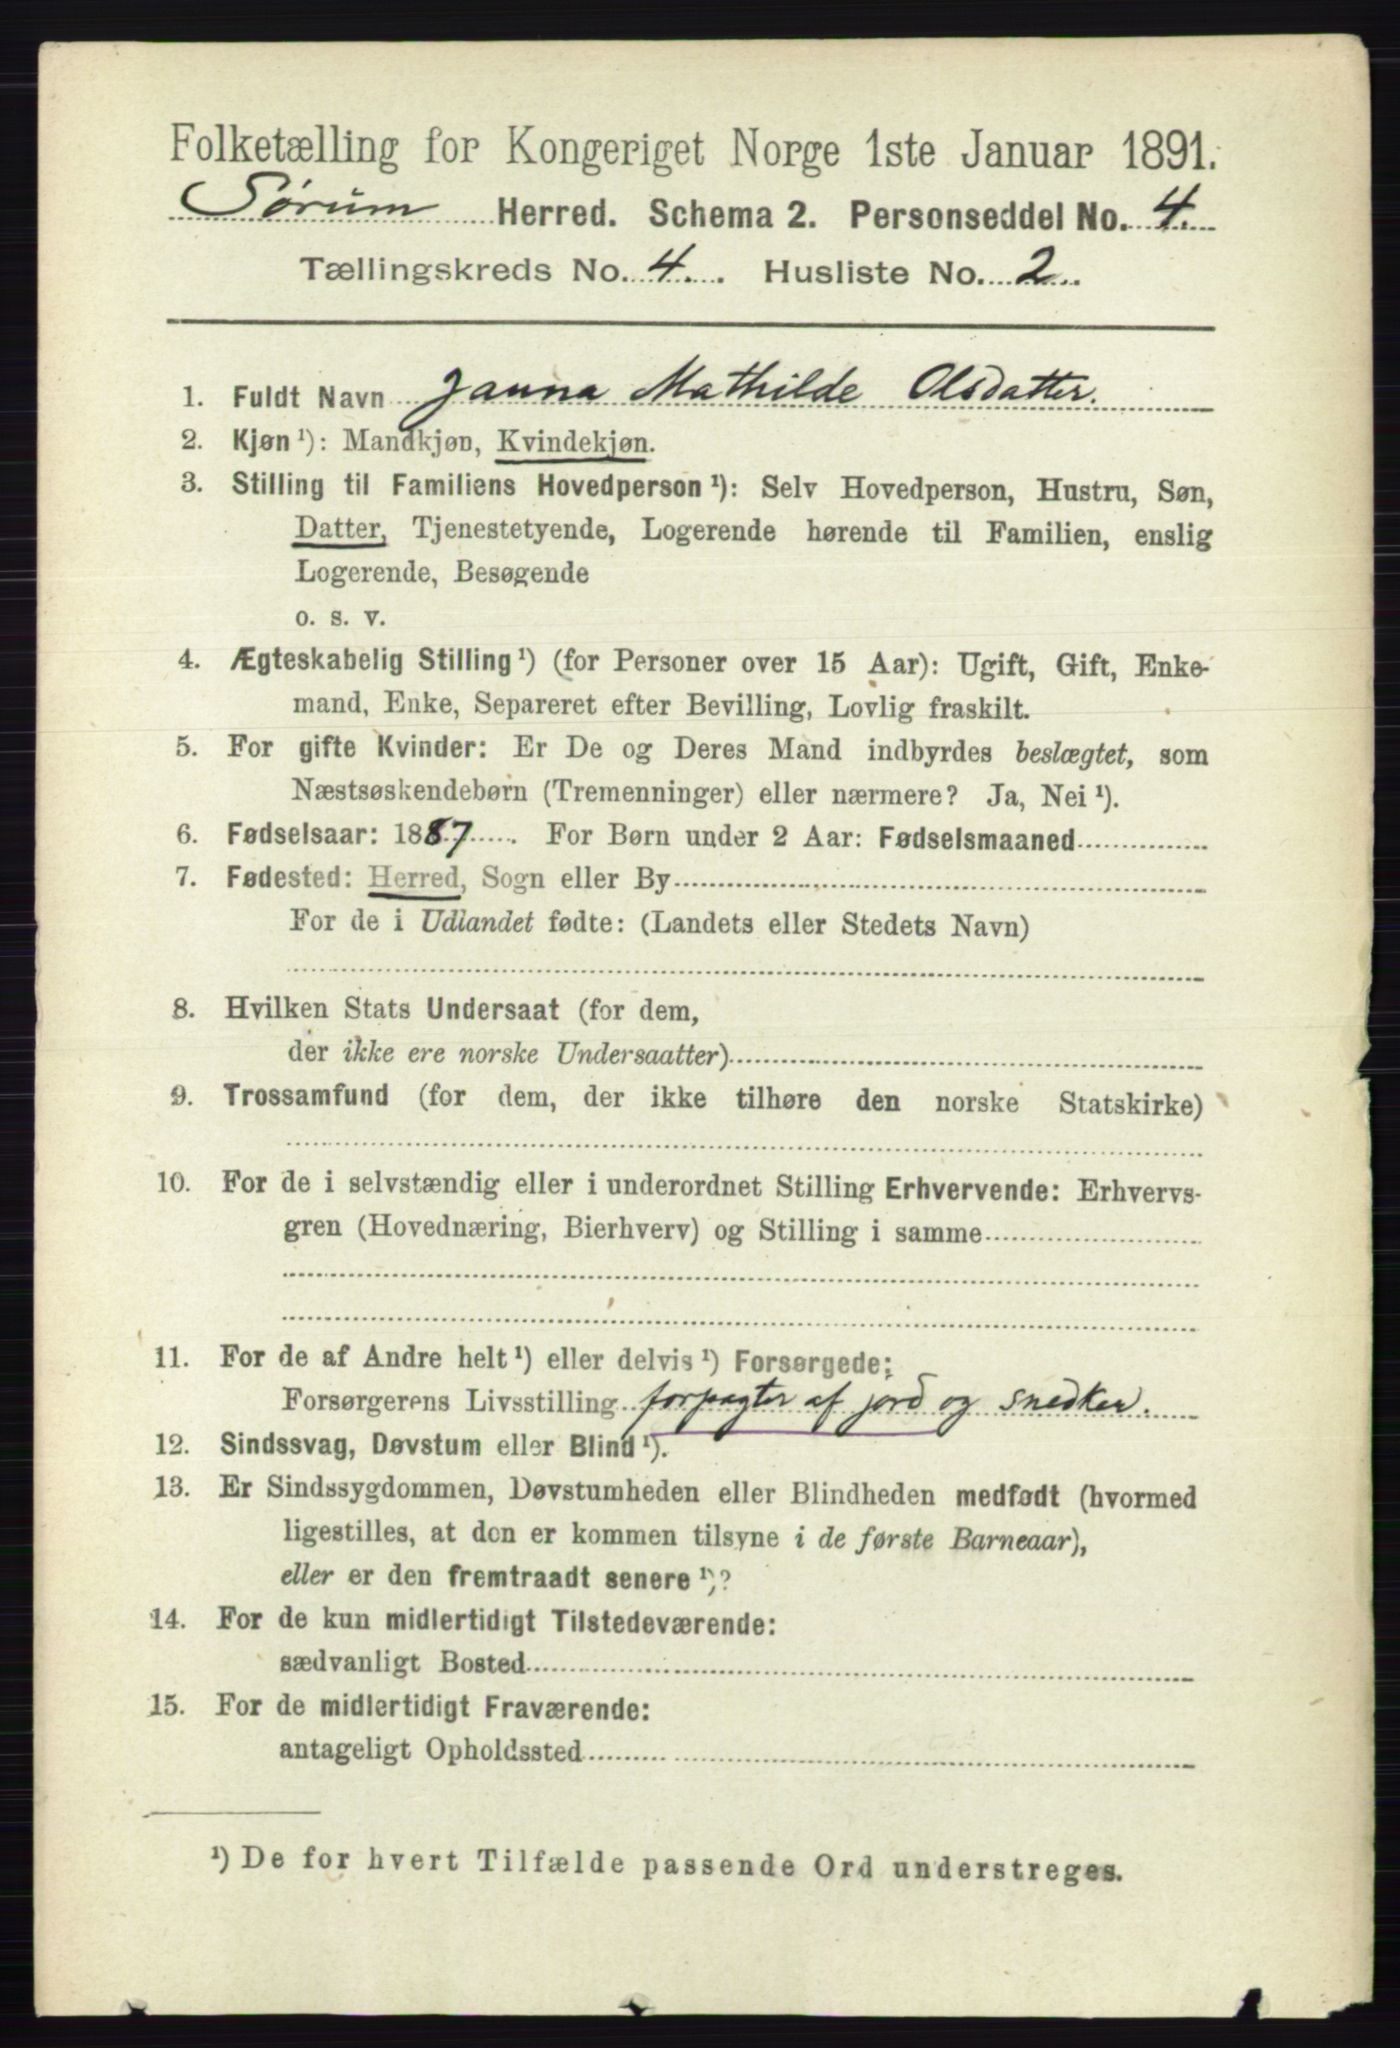 Folketælling for Kongeriget Norge 1ste Januar 1891.
Sørum Herred. Schema 2. Personseddel No. 4.
Tællingskreds No. 4. Husliste No. 2.
1. Fuldt Navn Janna Mathilde Olsdatter.
2. Kjøn¹): Mandkjøn, Kvindekjøn.
3. Stilling til Familiens Hovedperson¹): Selv Hovedperson, Hustru, Søn,
Datter, Tjenestetyende, Logerende hørende til Familien, enslig
Logerende, Besøgende
o. s. v.
4. Ægteskabelig Stilling¹) (for Personer over 15 Aar): Ugift, Gift, Enke-
mand, Enke, Separeret efter Bevilling, Lovlig fraskilt.
5. For gifte Kvinder: Er De og Deres Mand indbyrdes beslægtet, som
Næstsøskendebørn (Tremenninger) eller nærmere? Ja, Nei¹).
6. Fødselsaar: 1887. For Børn under 2 Aar: Fødselsmaaned
7. Fødested: Herred, Sogn eller By
For de i Udlandet fødte: (Landets eller Stedets Navn)
8. Hvilken Stats Undersaat (for dem,
der ikke ere norske Undersaatter)
9. Trossamfund (for dem, der ikke tilhøre den norske Statskirke)
10. For de i selvstændig eller i underordnet Stilling Erhvervende: Erhvervs-
gren (Hovednæring, Bierhverv) og Stilling i samme
11. For de af Andre helt¹) eller delvis¹) Forsørgede:
Forsørgerens Livsstilling forpagter af jord og snedker.
12. Sindssvag, Døvstum eller Blind¹).
13. Er Sindssygdommen, Døvstumheden eller Blindheden medfødt (hvormed
ligestilles, at den er kommen tilsyne i de første Barneaar),
eller er den fremtraadt senere¹)?
14. For de kun midlertidigt Tilstedeværende:
sædvanligt Bosted
15. For de midlertidigt Fraværende:
antageligt Opholdssted
¹) De for hvert Tilfælde passende Ord understreges.